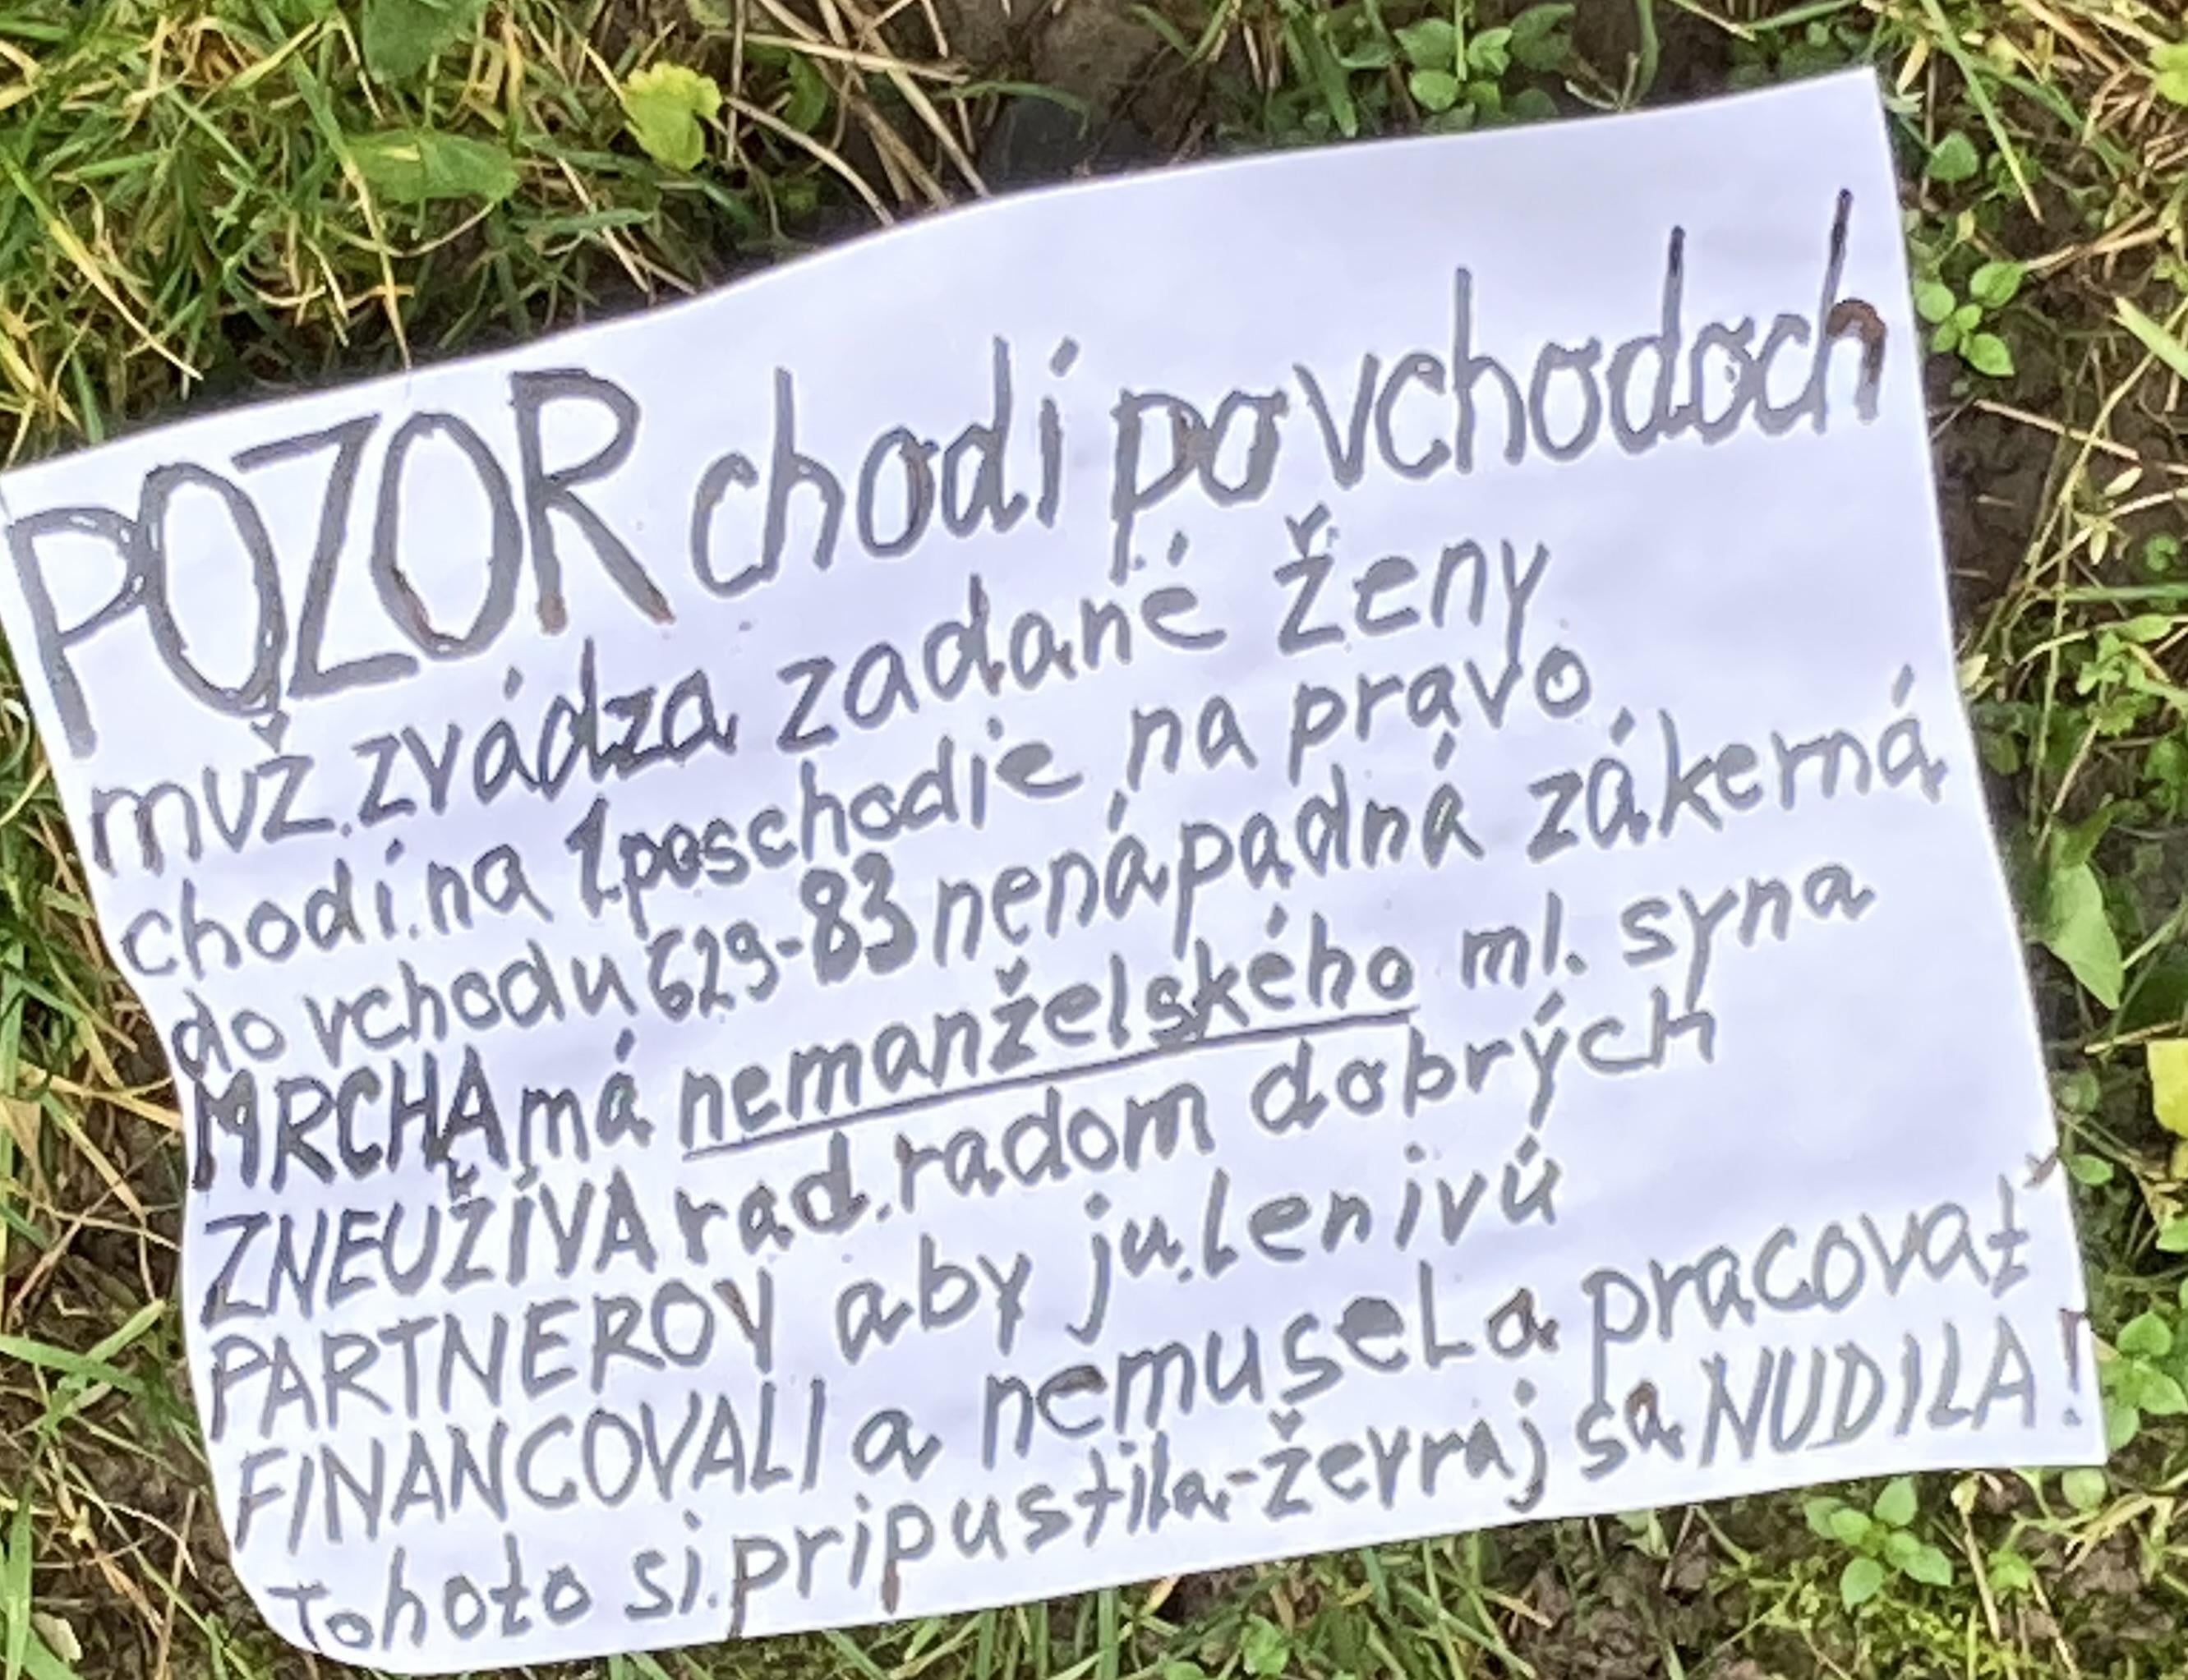 POZOR chodí po vchodoch
muž zvádza zadané ženy
chodí na 1 poschodie na právo
do vchodu 629-83 nenápadná zákerná
MRCHA má nemanželského ml. syna
ZNEUŽÍVA rad. radom dobrých
PARTNEROV aby ju lenivú
FINANCOVALI a nemusela pracovať
Tohoto si pripustila-ževraj sa NUDILA!